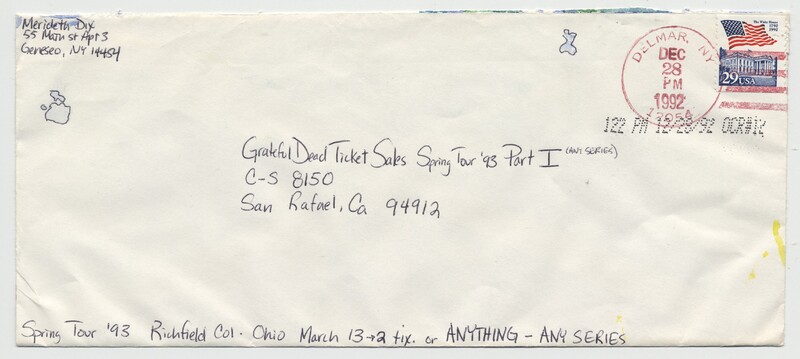 Merideth Dix
55 Main St Apt 3
Geneseo, NY 14454
DELMAR, NY
DEC
28
PM
1992
12054
The White House
1792
1992
29 USA
122 PM 12/28/92 OCR#12
Grateful Dead Ticket Sales Spring Tour '93 Part I (ANY SERIES)
C-S 8150
San Rafael, Ca 94912
Spring Tour '93 Richfield Col. Ohio March 13→2 tix. or ANYTHING - ANY SERIES